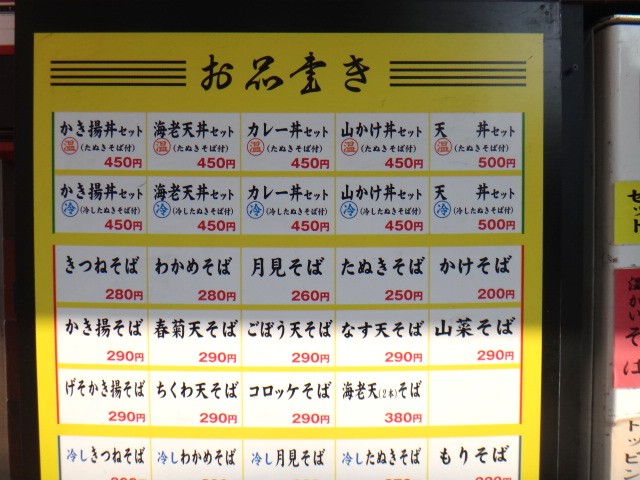 お品書き
かき揚丼セット 海老天丼セット カレー丼セット 山かけ丼セット 天 丼セット
温(たぬきそば付) 温(たぬきそば付) 温(たぬきそば付) 温(たぬきそば付) 温(たぬきそば付)
450円 450円 450円 450円 500円
かき揚丼セット 海老天丼セット カレー丼セット 山かけ丼セット 天 丼セット
冷(冷したぬきそば付) 冷(冷したぬきそば付) 冷(冷したぬきそば付) 冷(冷したぬきそば付) 冷(冷したぬきそば付)
450円 450円 450円 450円 500円
きつねそば わかめそば 月見そば たぬきそば かけそば
280円 280円 260円 250円 200円
かき揚そば 春菊天そば ごぼう天そば なす天そば 山菜そば
290円 290円 290円 290円 290円
げそかき揚そば ちくわ天そば コロッケそば 海老天(2本)そば
290円 290円 290円 380円
冷しきつねそば 冷しわかめそば 冷し月見そば 冷したぬきそば もりそば
セット
温かいそば
トッピン